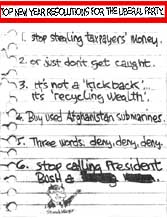 TOP NEW YEAR RESOLUTIONS FOR THE LIBERAL PARTY
1. stop stealing taxpayers' money.
2. or just don't get caught.
3. it's not a 'kickback'...
it's 'recycling wealth'.
4. Buy used Afghanistan submarines.
5. Three words: deny, deny, deny.
6. stop calling President
Bush a